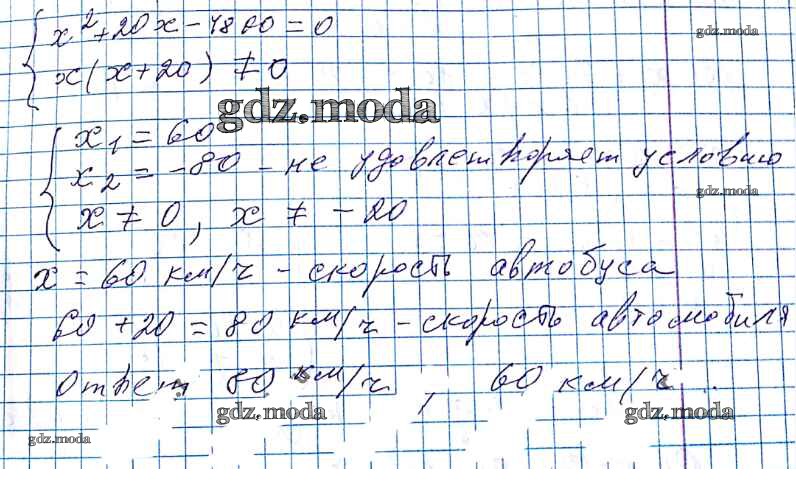 x² + 20x - 4800 = 0
gdz.moda
x(x + 20) ≠ 0
gdz.moda
x₁ = 60
x₂ = -80 - не удовлетворяет условию
gdz.moda
x ≠ 0, x ≠ -20
x = 60 км/ч - скорость автобуса
60 + 20 = 80 км/ч - скорость автомобиля
Ответ 80 км/ч, 60 км/ч.
gdz.moda gdz.moda
gdz.moda